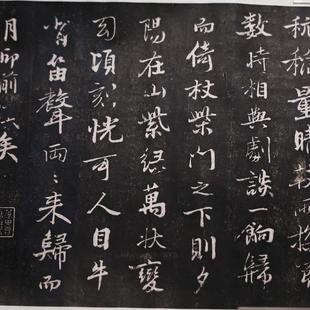 秔稻量晴較雨探
數時相與劇談一餉歸
而倚杖柴門之下則夕
陽在山紫綠萬狀變
幻頃刻恍可人目牛
背笛聲兩〻來歸而
月印前谿矣